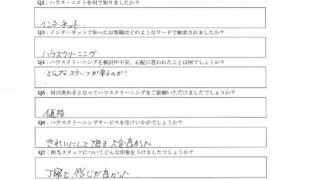 Q2：ハウス・エイトを何で知りましたか？
インターネット
Q3：インターネットで知ったお客様はどのようなワードで検索されましたか？
ハウスクリーニング
Q4：ハウスクリーニングを検討中不安、心配に思われたことは何でしょうか？
どんなスタッフが来るのか？
Q5：何が決め手となってハウスクリーニングをご依頼いただけましたでしょうか？
価格
Q6：ハウスクリーニングサービスを受けていかがでしょうか？
きれいにして頂き大変良かった
Q7：担当スタッフについてどんな印象をうけましたでしょうか？
丁寧で感じが良かった